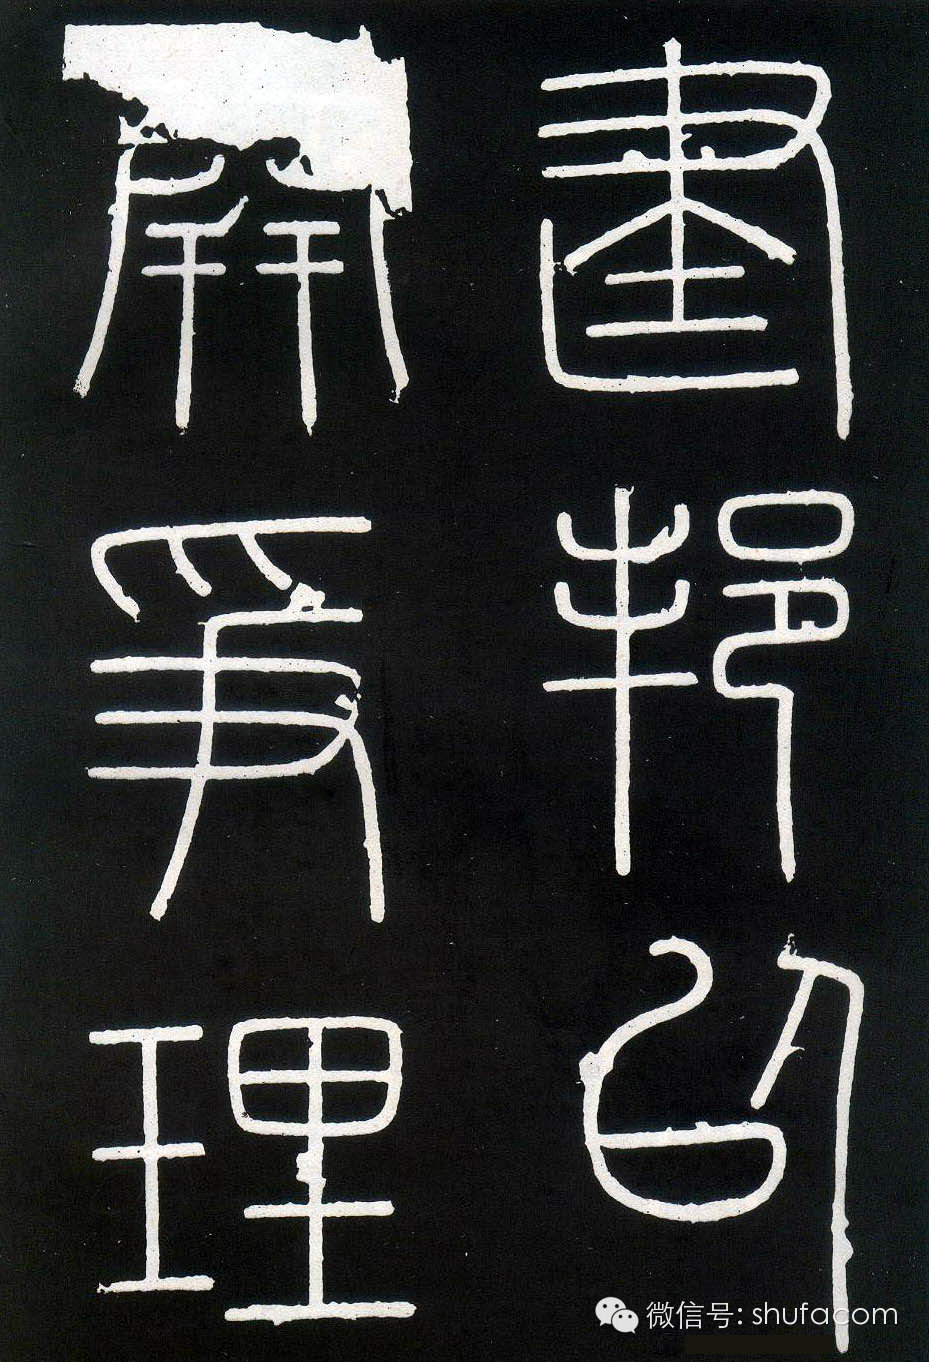 建邦以
開爲理
微信号: shufacom